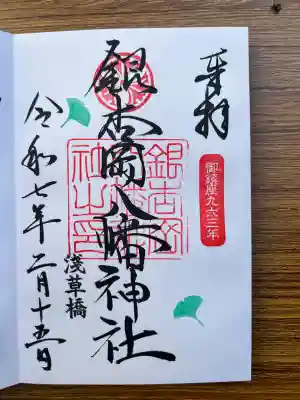 奉拝
御鎮座九六三年
銀杏岡八幡神社
浅草橋
令和七年二月十五日